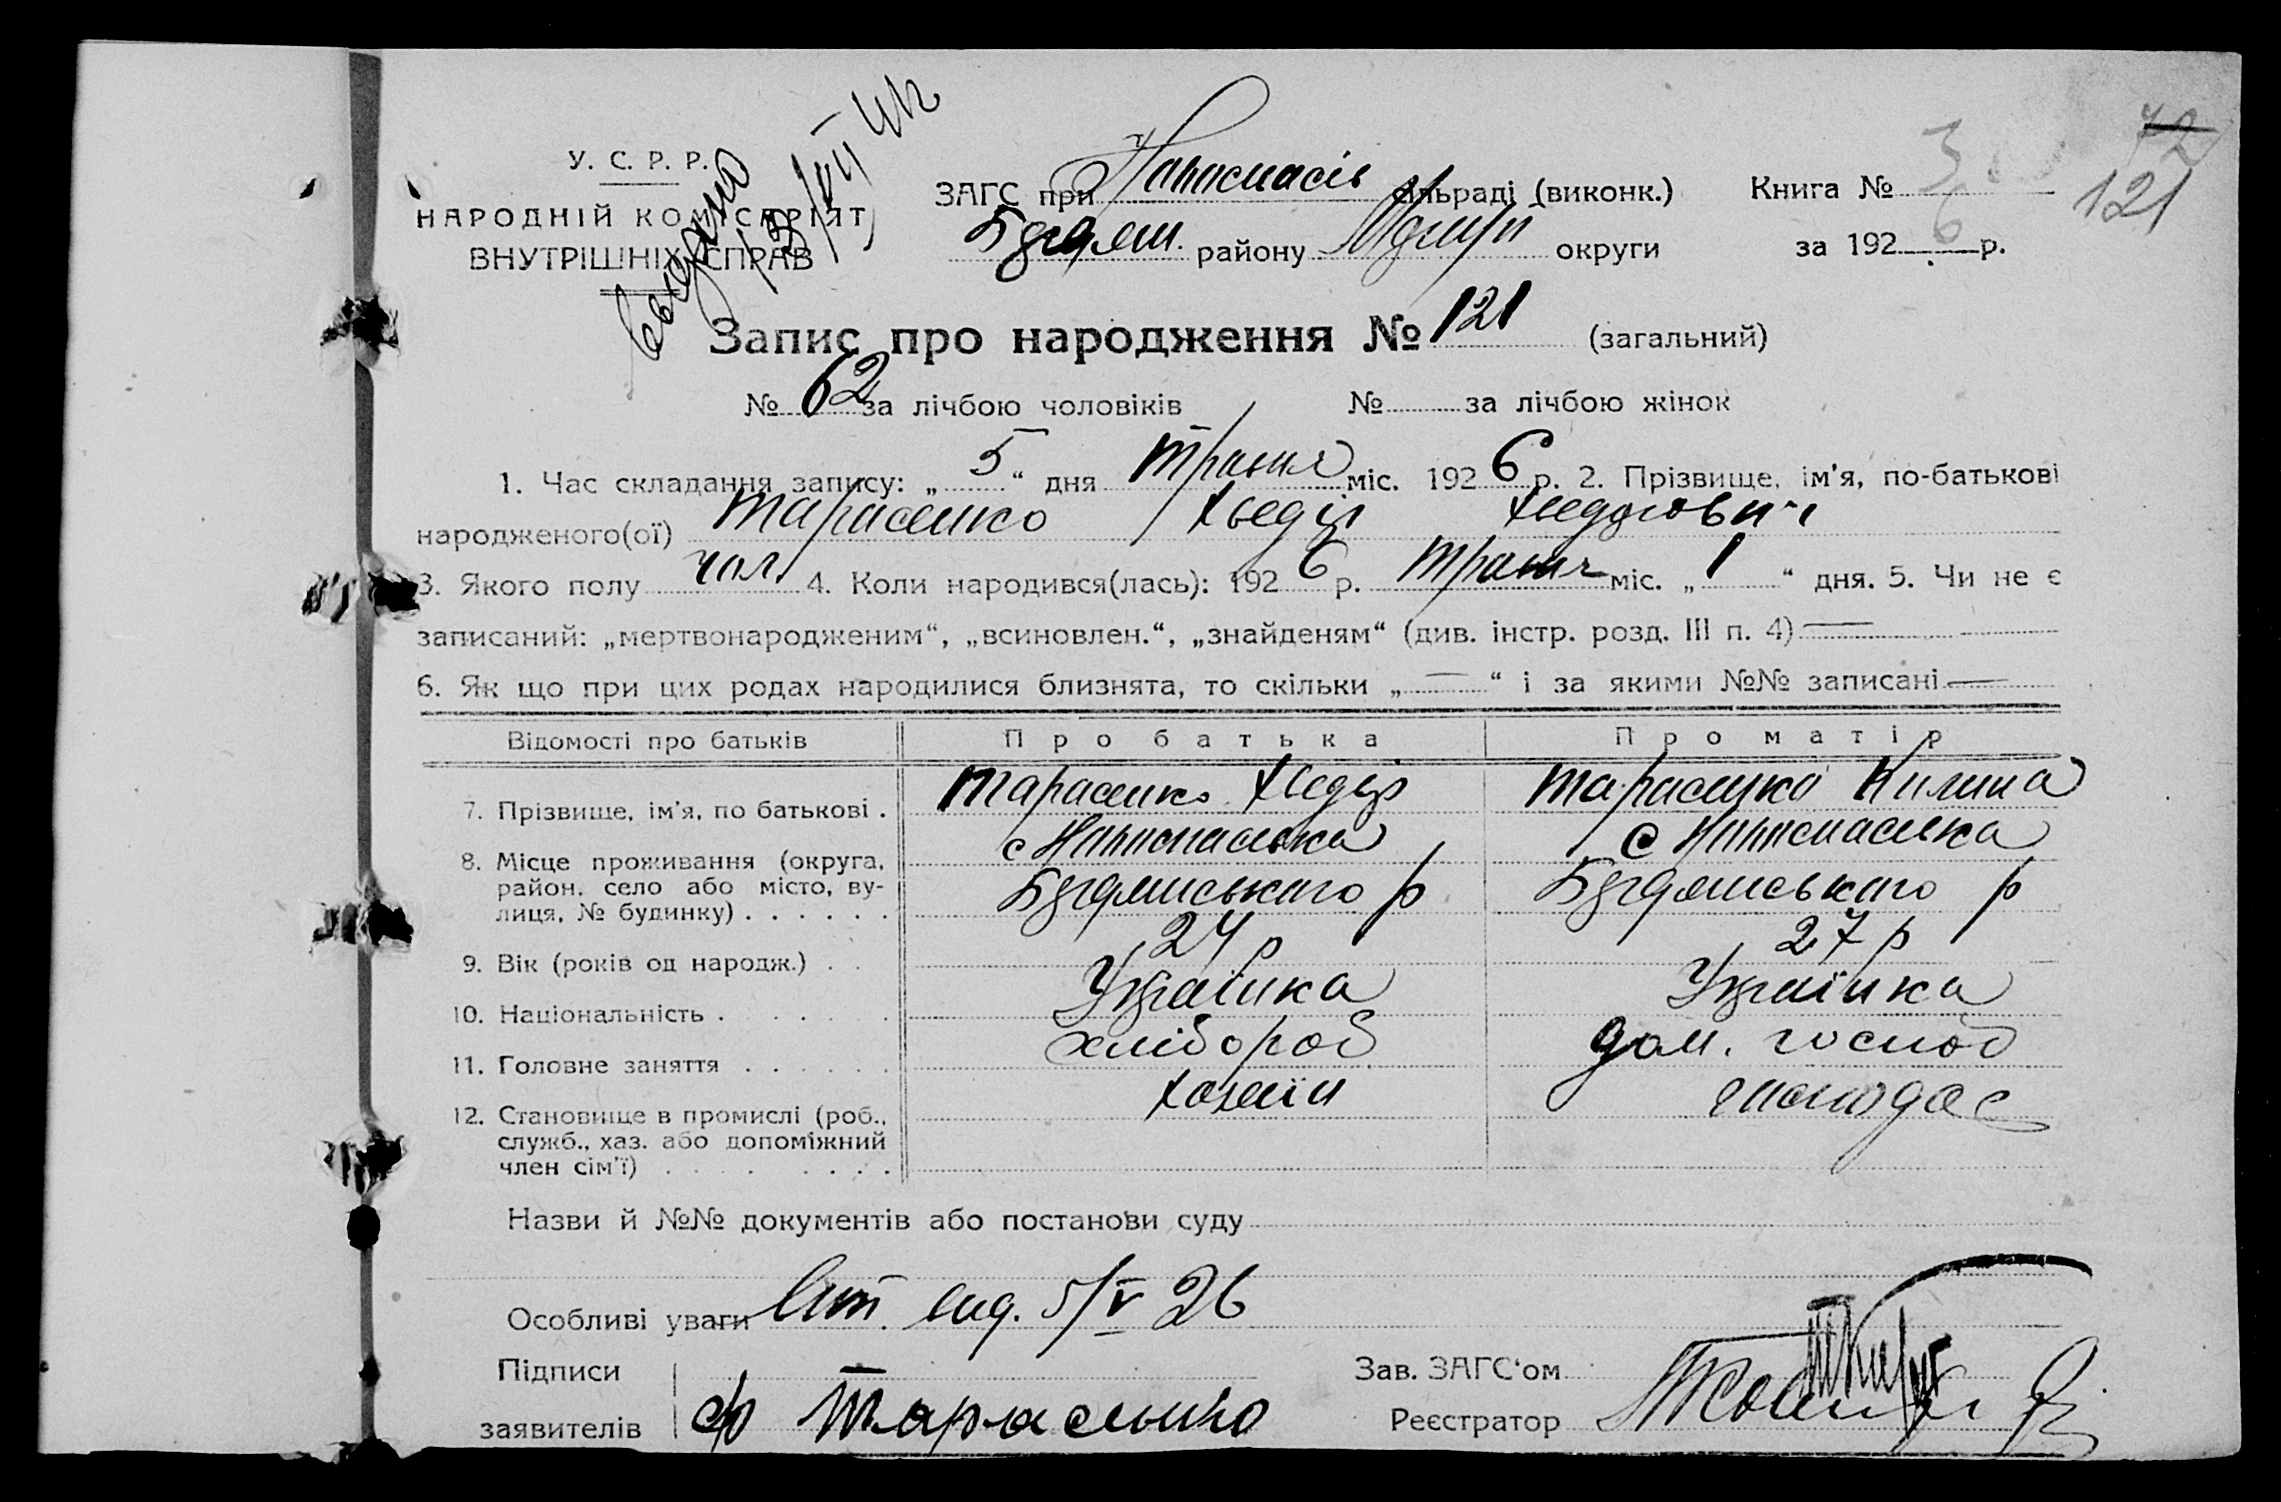 72
121
видано
13/VII 42
У. С. Р. Р.
НАРОДНІЙ КОМІСАРІЯТ
ВНУТРІШНІХ СПРАВ
ЗАГС при сільраді (виконк.) Книга № 3
району округи за 1926 р.
Запис про народження № 121 (загальний)
№ 62 за лічбою чоловіків № за лічбою жінок
1. Час складання запису: „5“ дня травня міс. 1926 р. 2. Прізвище, ім'я, по-батькові
народженого(ої) Тарасенко Хведір Хведорович
3. Якого полу чол. 4. Коли народився(лась): 1926 р. травня міс. „1“ дня. 5. Чи не є
записаний: „мертвонародженим“, „всиновлен.“, „знайденям“ (див. інстр. розд. III п. 4) —
6. Як що при цих родах народилися близнята, то скільки „—“ і за якими №№ записані —
Відомості про батьків Про батька Про матір
7. Прізвище, ім'я, по батькові . Тарасенко Хведір Тарасенко Килина
8. Місце проживання (округа, район, село або місто, вулиця, № будинку) . . . . . . с р с р
9. Вік (років од народж.) . . 24 р 27 р
10. Національність . . . . . . Українка Українка
11. Головне заняття . . . . . . хлібороб дом. господ
12. Становище в промислі (роб., служб., хаз. або допоміжний член сім'ї) . . . . . . . . хазяїн
Назви й №№ документів або постанови суду
Особливі уваги вид. 5/V 26
Підписи Зав. ЗАГС'ом
заявителів Ф Тарасенко Реєстратор